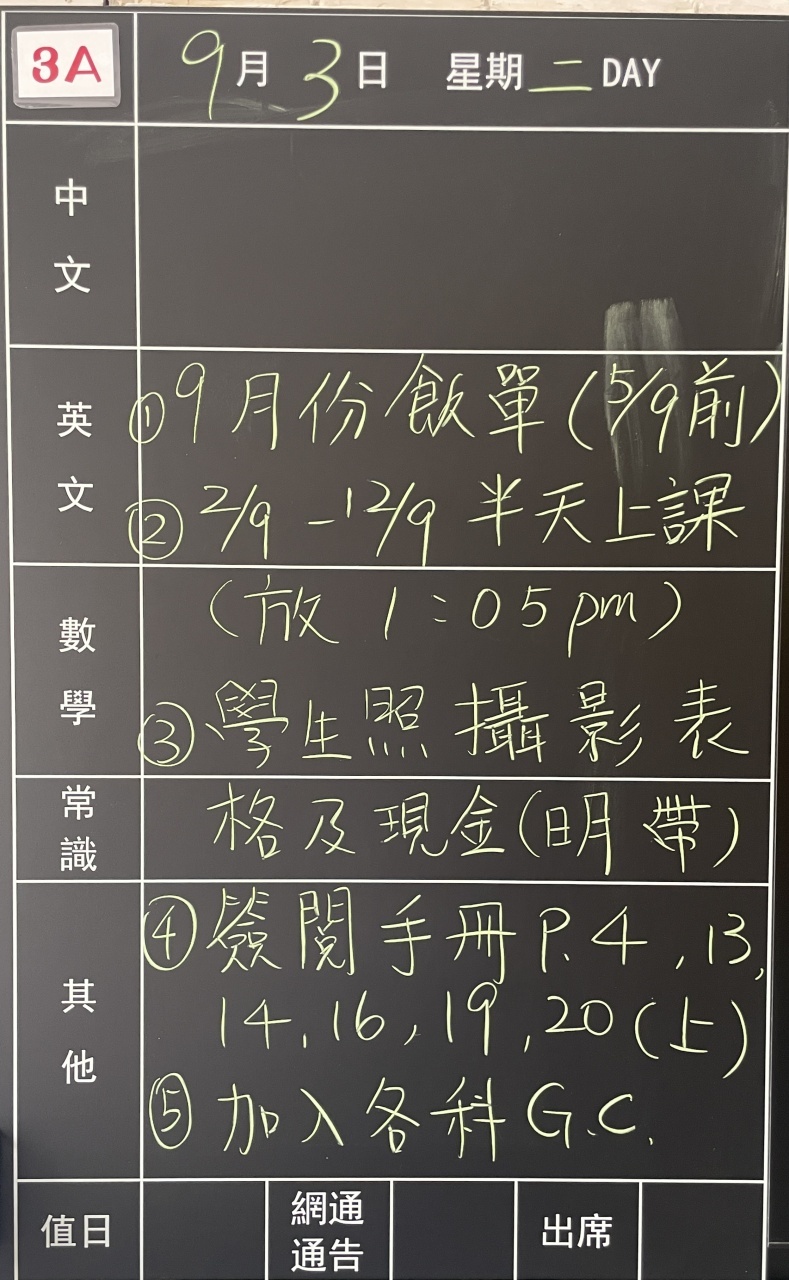 3A 9月3日 星期二 DAY
中文
英文
①9月份飯單(5/9前)
②2/9-12/9 半天上課
數學
(放 1:05pm)
③學生照攝影表
常識
格及現金(明帶)
其他
④簽閱手冊P.4,13,
14,16,19,20(上)
⑤加入各科G.C.
值日 網通通告 出席